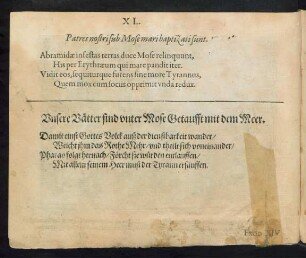 XL.
Patres nostri sub Mose mari baptizati sunt.
Abramidæ infestas terras duce Mose relinquunt,
His per Erythræum qui mare pandit iter.
Vidit eos, sequiturque furens sine more Tyrannos,
Quem mox eum locus opprimit vnda redux.
Unsere Vätter sind vnter Mose Getaufft mit dem Meer.
Damit einst Gottes Volck auß der dienstbarkeit wander/
Weicht ihm das Rothe Mehr/ vnd theilt sich voneinander/
Pharao folgt hernach/ Förcht sie würden entlauffen/
Mit allem seinem Heer muß der Tyrann ersauffen.